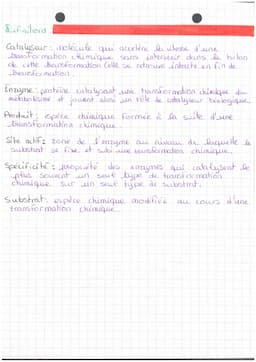 Définitions
Catalyseur : molécule qui accélère la vitesse d'une
transformation chimique sans intervenir dans le bilan
de cette transformation. Celle se retrouve intacte en fin de
transformation.
Enzyme : protéine catalysant une transformation chimique du
métabolisme et jouant alors un rôle de catalyseur biologique.
Produit : espèce chimique formée à la suite d'une
transformation chimique.
Site actif : zone de l'enzyme au niveau de laquelle le
substrat se fixe et subi une transformation chimique.
Spécificité : propriété des enzymes qui catalysent le
plus souvent un seul type de transformation
chimique sur un seul type de substrat.
Substrat : espèce chimique modifiée au cours d'une
transformation chimique.